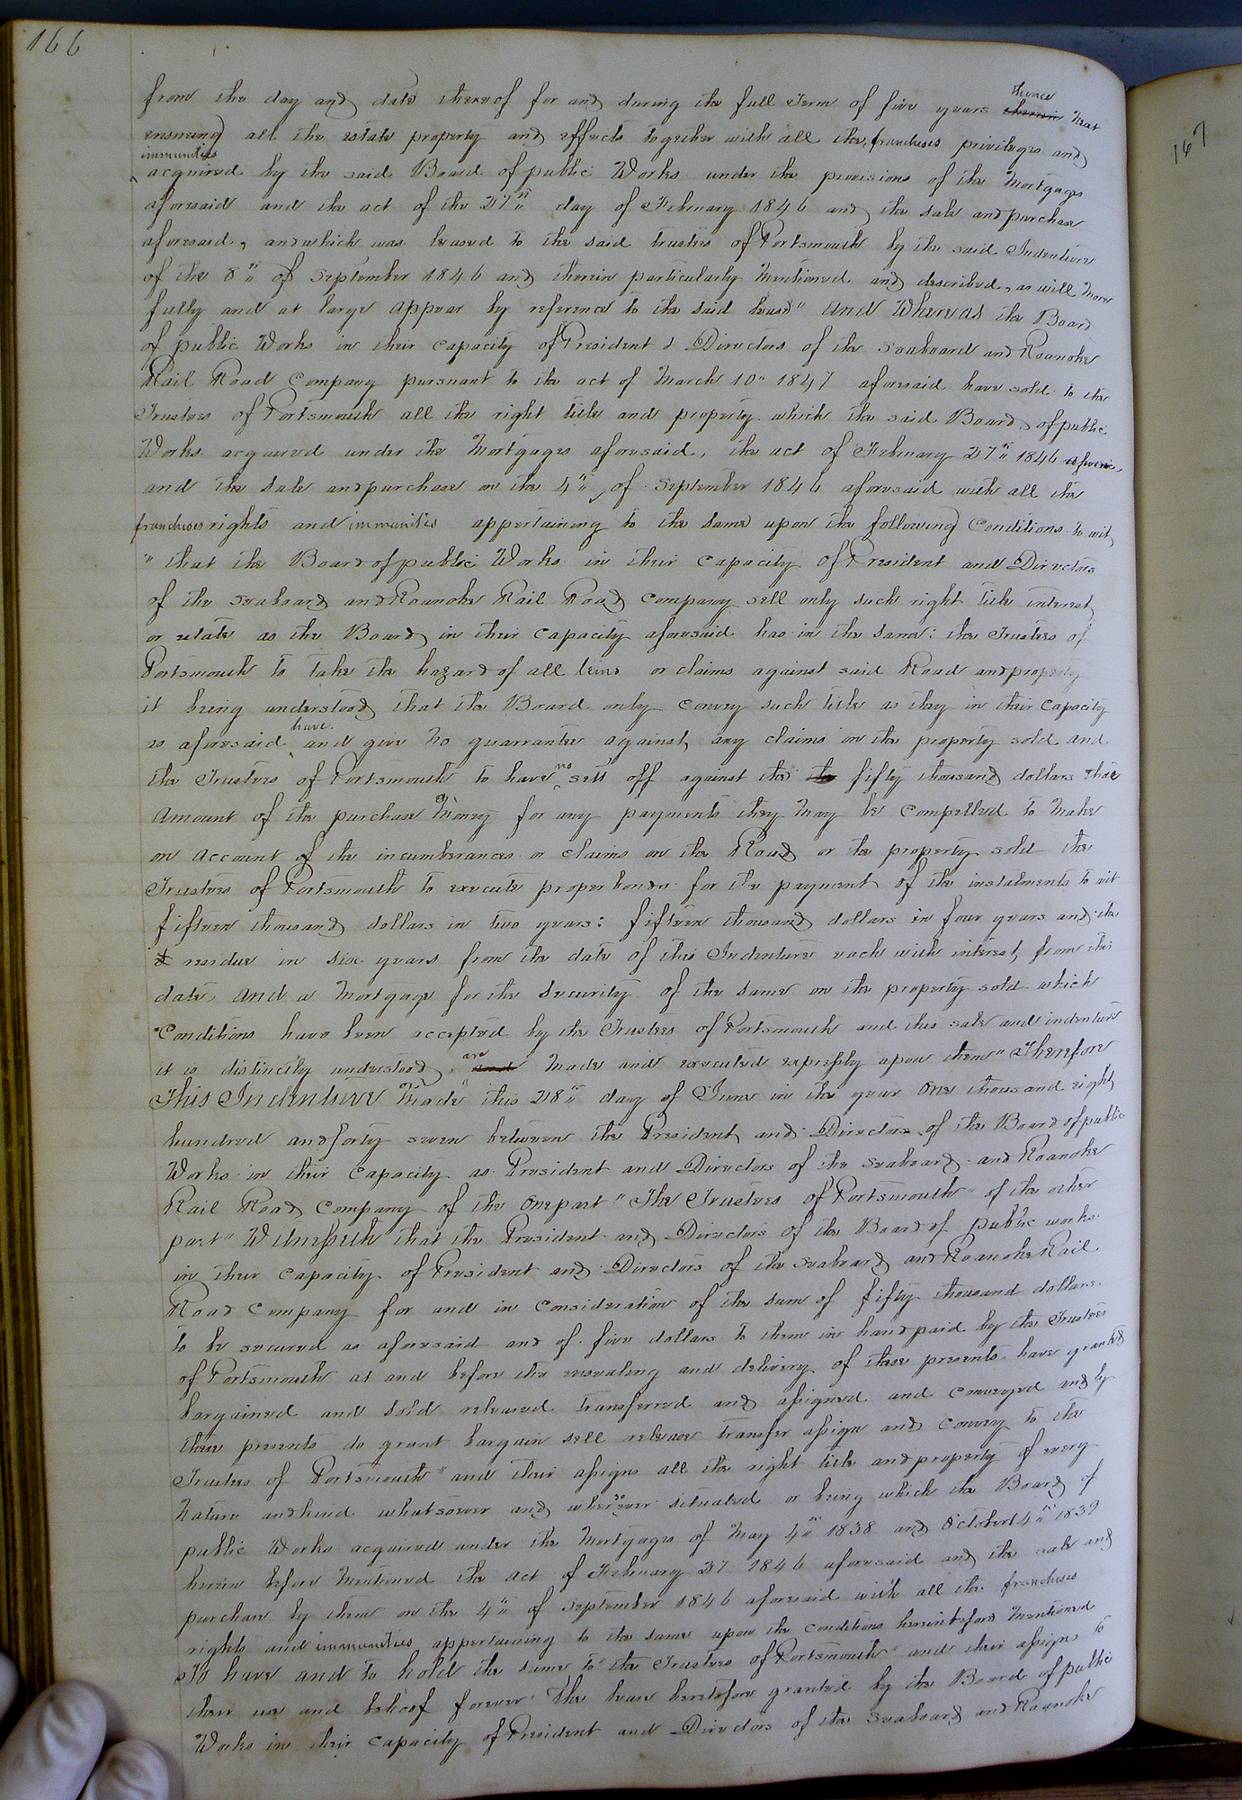 166
from the day and date thereof for and during the full Term of five years thence next
ensueing all the estate property and effects together with all the franchises privileges and
immunities
acquired by the said Board of public Works under the provisions of the Mortgages
aforesaid and the act of the 27th day of February 1846 and the sale and purchase
aforesaid, and which was leased to the said trustees of Portsmouth by the said Indenture
of the 8th of September 1846 and therein particularly Mentioned and described, as will More
fully and at large appear by reference to the said lease" And Whereas the Board
of public Works in their capacity of President & Directors of the seaboard and Roanoke
Rail Road Company pursuant to the act of March 10th 1847 aforesaid have sold to the
Trustees of Portsmouth all the right title and property which the said Board of public
Works acquired under the Mortgages aforesaid, the act of February 27th 1846 aforesaid,
and the sale and purchase on the 4th of September 1846 aforesaid with all the
franchises rights and immunities appertaining to the same upon the following Conditions to wit,
" that the Board of public Works in their capacity of President and Directors
of the seaboard and Roanoke Rail Road Company sell only such right title interest
or estate as the Board in their capacity aforesaid has in the same: the Trustees of
Portsmouth to take the hazard of all leins or claims against said Road and property
it being understood that the Board only convey such title as they in their capacity
have
as aforesaid and give no guarrantee against any claims on the property sold and
the Trustees of Portsmouth to have no sett off against the the fifty thousand dollars the
amount of the purchase Money for any payments they may be compelled to make
on account of the incumberances or claims on the Road or the property sold the
Trustees of Portsmouth to execute proper bonds for the payment of the instalments to wit
fifteen thousand dollars in two years: fifteen thousand dollars in four years and the
residue in six years from the date of this Indenture each with interest from the
date and a Mortgage for the security of the same on the property sold which
Conditions have been accepted by the Trustees of Portsmouth and this sale and indenture
it is distinctly understood, are made and executed expressly upon them" Therefore
This Indenture Made this 28th day of June in the year One thousand eight
hundred and forty seven between the President and Directors of the Board of public
Works in their capacity as President and Directors of the seaboard and Roanoke
Rail Road Company of the one part "The Trustees of Portsmouth" of the other
part" Witnesseth that the President and Directors of the Board of public works
in their capacity of President and Directors of the seaboard and Roanoke Rail
Road Company for and in consideration of the sum of fifty thousand dollars
to be secured as aforesaid and of five dollars to them in hand paid by the Trustees
of Portsmouth at and before the ensealing and delivery of these presents have granted
bargained and sold released transferred and assigned and conveyed and by
these presents do grant bargain sell release transfer assign and convey to the
Trustees of Portsmouth" and their assigns all the right title and property of every
Nature and kind whatsoever and wheresoever situated or being which the Board of
public Works acquired under the Mortgages of May 4th 1838 and October 4th 1839
herein before Mentioned the act of February 27 1846 aforesaid and the sale and
purchase by them on the 4th of September 1846 aforesaid with all the franchises
rights and immunities appertaining to the same upon the conditions hereinbefore Mentioned
To have and to hold the same to the Trustees of Portsmouth" and their assigns to
their use and behoof forever. The lease heretofore granted by the Board of public
Works in their capacity of President and Directors of the seaboard and Roanoke
167